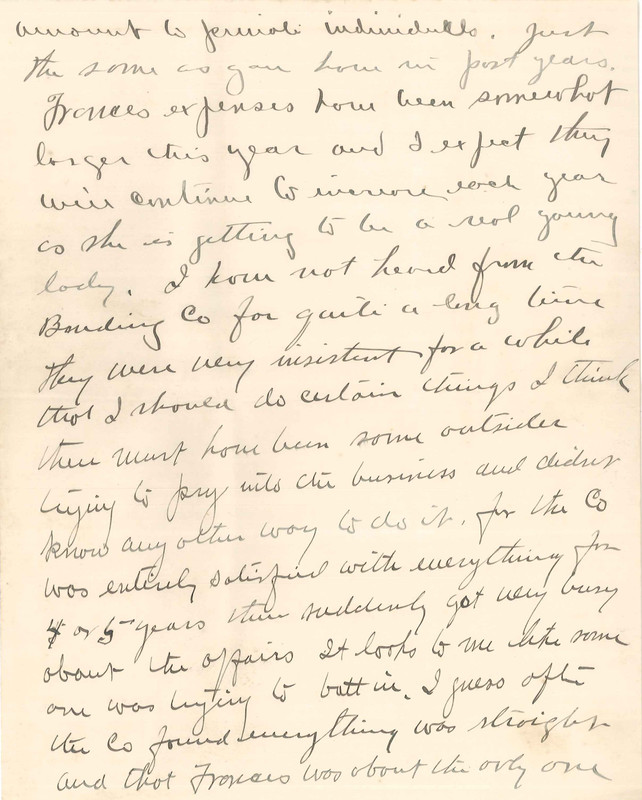 amount to private individuals. Just
the same as you have in past years.
Frances expenses have been somewhat
larger this year and I expect they
will continue to increase each year
as she is getting to be a real young
lady. I have not heard from the
Bonding Co for quite a long time
they were very insistent for a while
that I should do certain things I think
there must have been some outsider
trying to pry into the business and didnt
know any other way to do it. for the Co
was entirely satisfied with everything for
4 or 5 years then suddenly got very busy
about the affairs It looks to me like some
one was trying to butt in. I guess after
the Co found everything was straight
and that Frances was about the only one